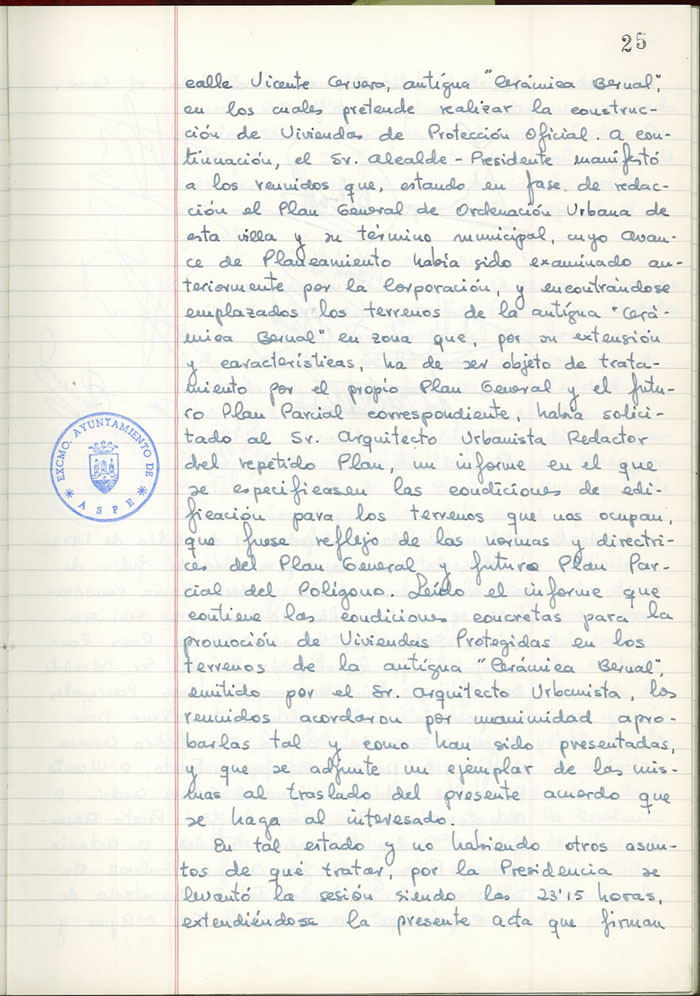 25
calle Vicente Cervera, antígua "Cerámica Bernal",
en los cuales pretende realizar la construc-
ción de Viviendas de Protección Oficial. A con-
tinuación, el Sr. Alcalde-Presidente manifestó
a los reunidos que, estando en fase de redac-
ción el Plan General de Ordenación Urbana de
esta villa y su término municipal, cuyo Avan-
ce de Planeamiento había sido examinado an-
teriormente por la Corporación, y encontrándose
emplazados los terrenos de la antígua "Cerá-
mica Bernal" en zona que, por su extensión
y características, ha de ser objeto de trata-
miento por el propio Plan General y el futu-
ro Plan Parcial correspondiente, había solici-
tado al Sr. Arquitecto Urbanista Redactor
del repetido Plan, un informe en el que
se especificasen las condiciones de edi-
ficación para los terrenos que nos ocupan,
que fuese reflejo de las normas y directri-
ces del Plan General y futuro Plan Par-
cial del Polígono. Leído el informe que
contiene las condiciones concretas para la
promoción de Viviendas Protegidas en los
terrenos de la antígua "Cerámica Bernal",
emitido por el Sr. Arquitecto Urbanista, los
reunidos acordaron por unanimidad apro-
barlas tal y como han sido presentadas,
y que se adjunte un ejemplar de las mis-
mas al traslado del presente acuerdo que
se haga al interesado.
En tal estado y no habiendo otros asun-
tos de qué tratar, por la Presidencia se
levantó la sesión siendo las 23'15 horas,
extendiéndose la presente acta que firman
EXCMO. AYUNTAMIENTO DE
* ASPE *